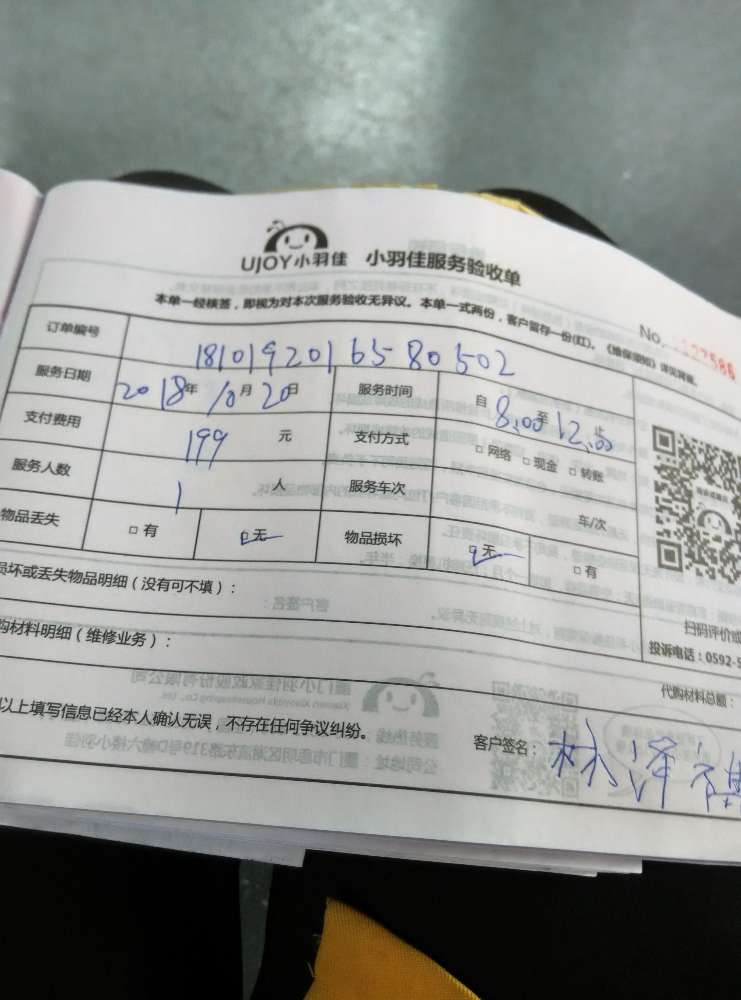 UJOY小羽佳 小羽佳服务验收单
本单一经核签，即视为对本次服务验收无异议。本单一式两份，客户留存一份(红)。《维保须知》详见背面。
No. 127586
订单编号 1810192016580502
服务日期 2018年10月20日 服务时间 自8:00至12:00止
支付费用 199元 支付方式 □网络 □现金 □转账
服务人数 1人 服务车次 车/次
物品丢失 □有 □无 物品损坏 □无 □有
损坏或丢失物品明细（没有可不填）：
购材料明细（维修业务）：
扫码评价或
投诉电话：0592-5
代购材料总额：
以上填写信息已经本人确认无误，不存在任何争议纠纷。
客户签名：林泽